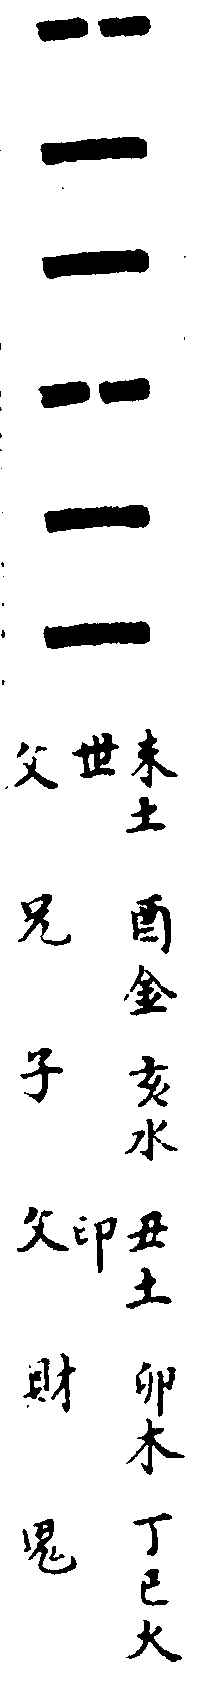 父世未土
兄 酉金
子 亥水
父印丑土
財 卯木
鬼 丁巳火